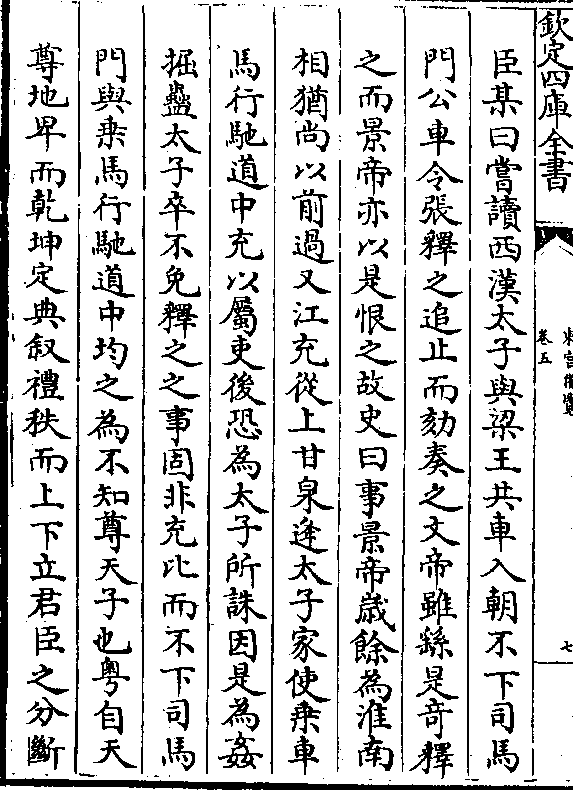 欽定四庫全書
卷五
七
臣某曰嘗讀西漢太子與梁王共車入朝不下司馬
門公車令張釋之追止而劾奏之文帝雖繇是奇釋
之而景帝亦以是恨之故史曰事景帝歲餘為淮南
相猶尚以前過又江充從上甘泉逢太子家使乗車
馬行馳道中充以屬吏後恐為太子所誅因是為姦
掘蠱太子卒不免釋之之事固非充比而不下司馬
門與乗馬行馳道中均之為不知尊天子也粤自天
尊地卑而乾坤定典叙禮秩而上下立君臣之分斷